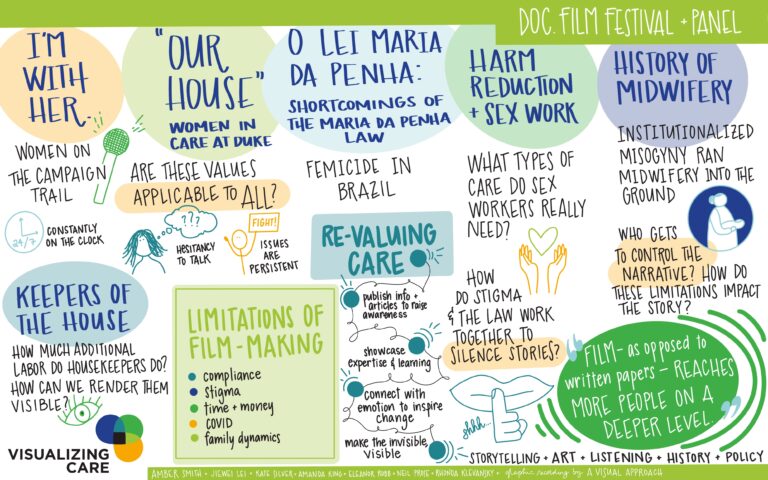 DOC. FILM FESTIVAL + PANEL
I'M
WITH
HER.
WOMEN ON
THE CAMPAIGN
TRAIL
24/7
CONSTANTLY
ON THE CLOCK
"OUR
HOUSE"
WOMEN IN
CARE AT DUKE
ARE THESE VALUES
APPLICABLE TO ALL?
???
HESITANCY
TO TALK
FIGHT!
ISSUES
ARE
PERSISTENT
O LEI MARIA
DA PENHA:
SHORTCOMINGS OF
THE MARIA DA PENHA
LAW
FEMICIDE IN
BRAZIL
HARM
REDUCTION
+ SEX WORK
WHAT TYPES OF
CARE DO SEX
WORKERS REALLY
NEED?
HOW
DO STIGMA
& THE LAW WORK
TOGETHER TO
SILENCE STORIES?
shhh
HISTORY OF
MIDWIFERY
INSTITUTIONALIZED
MISOGYNY RAN
MIDWIFERY INTO THE
GROUND
WHO GETS
TO CONTROL THE
NARRATIVE? HOW DO
THESE LIMITATIONS IMPACT
THE STORY?
KEEPERS OF
THE HOUSE
HOW MUCH ADDITIONAL
LABOR DO HOUSEKEEPERS DO?
HOW CAN WE RENDER THEM
VISIBLE?
VISUALIZING
CARE
LIMITATIONS OF
FILM-MAKING
compliance
stigma
time + money
COVID
family dynamics
RE-VALUING
CARE
publish info +
articles to raise
awareness
showcase
expertise & learning
connect with
emotion to inspire
change
make the invisible,
visible
"FILM - as opposed to
written papers - REACHES
MORE PEOPLE ON A
DEEPER LEVEL."
STORYTELLING + ART + LISTENING + HISTORY + POLICY
AMBER SMITH + JIEWEI LEI + KATE SILVER + AMANDA KING + ELEANOR ROBB + NEIL PROSE + RHONDA KLEVANSKY + graphic recording by A VISUAL APPROACH